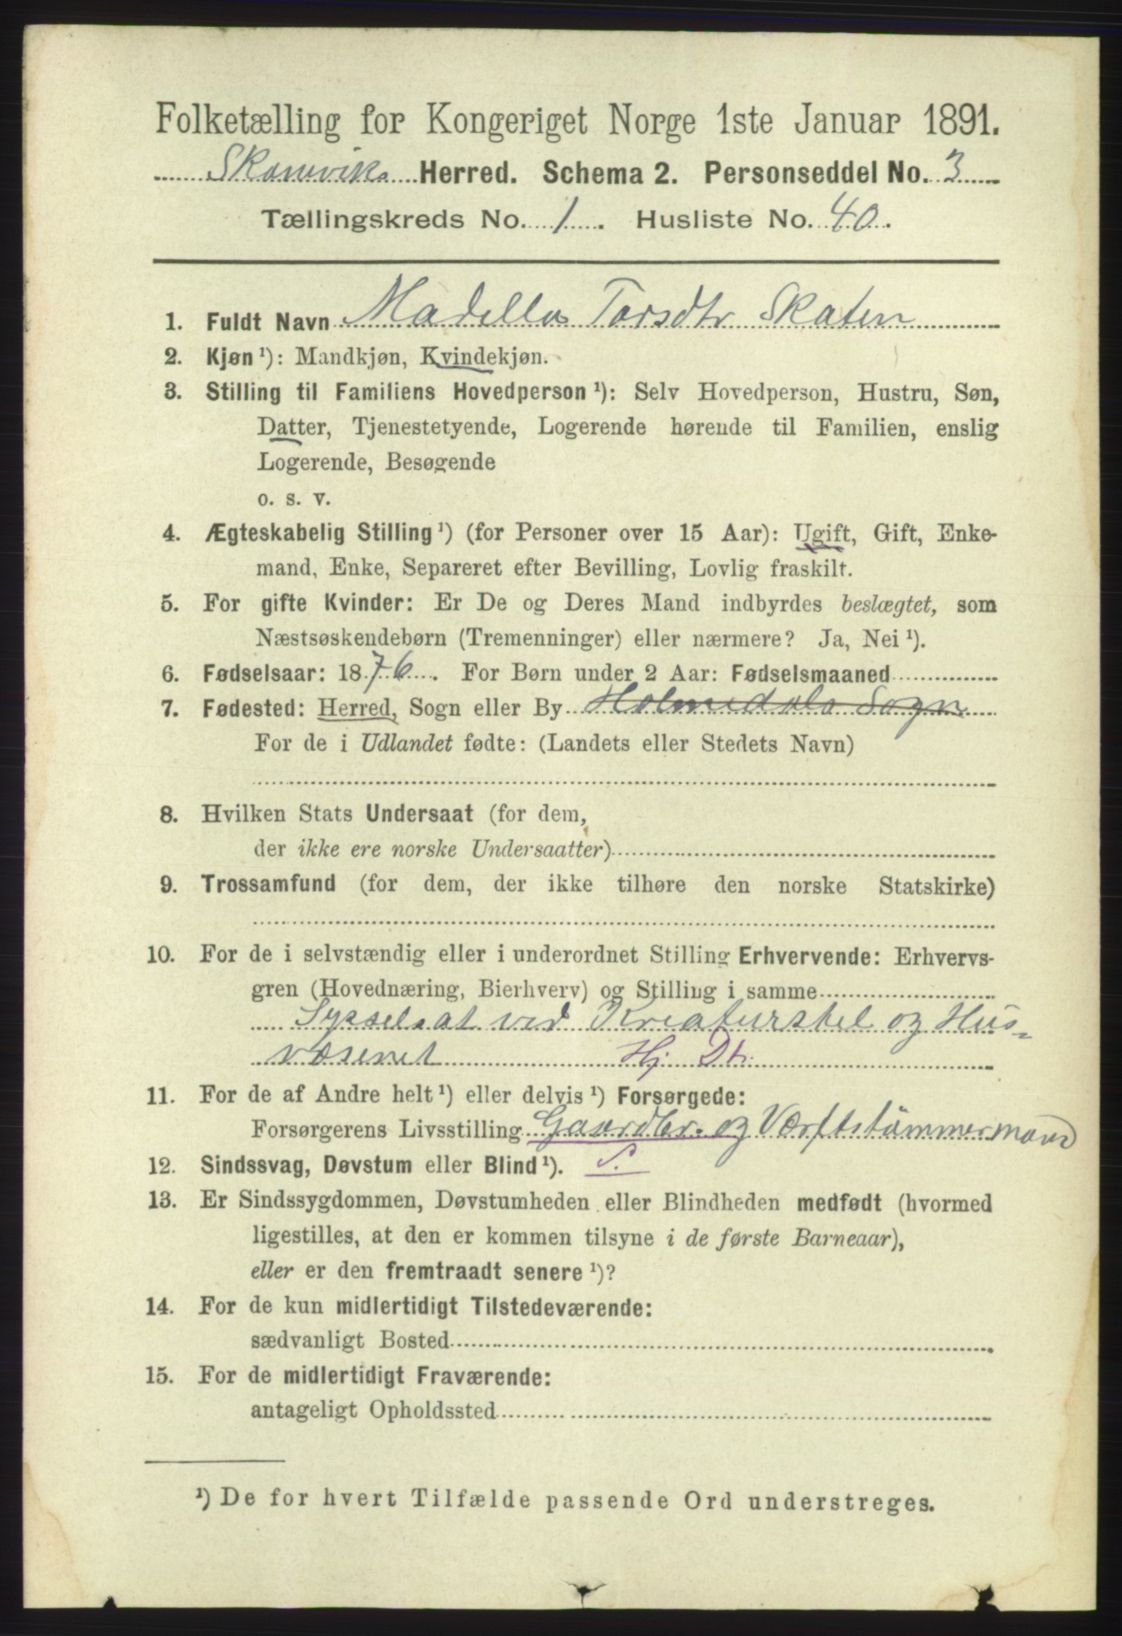 Folketælling for Kongeriget Norge 1ste Januar 1891.
Skånevik Herred. Schema 2. Personseddel No. 3
Tællingskreds No. 1. Husliste No. 40.
1. Fuldt Navn Madella Torsdtr Skaten
2. Kjøn ¹): Mandkjøn, Kvindekjøn.
3. Stilling til Familiens Hovedperson ¹): Selv Hovedperson, Hustru, Søn,
Datter, Tjenestetyende, Logerende hørende til Familien, enslig
Logerende, Besøgende
o. s. v.
4. Ægteskabelig Stilling ¹) (for Personer over 15 Aar): Ugift, Gift, Enke-
mand, Enke, Separeret efter Bevilling, Lovlig fraskilt.
5. For gifte Kvinder: Er De og Deres Mand indbyrdes beslægtet, som
Næstsøskendebørn (Tremenninger) eller nærmere? Ja, Nei ¹).
6. Fødselsaar: 1876. For Børn under 2 Aar: Fødselsmaaned
7. Fødested: Herred, Sogn eller By Holmedals Sogn
For de i Udlandet fødte: (Landets eller Stedets Navn)
8. Hvilken Stats Undersaat (for dem,
der ikke ere norske Undersaatter)
9. Trossamfund (for dem, der ikke tilhøre den norske Statskirke)
10. For de i selvstændig eller i underordnet Stilling Erhvervende: Erhvervs-
gren (Hovednæring, Bierhverv) og Stilling i samme
Sysselsat ved Kreaturstel og Hus-
væsenet Hj. Dt.
11. For de af Andre helt ¹) eller delvis ¹) Forsørgede:
Forsørgerens Livsstilling Gaardbr. og Værftstømmermand
12. Sindssvag, Døvstum eller Blind ¹).
13. Er Sindssygdommen, Døvstumheden eller Blindheden medfødt (hvormed
ligestilles, at den er kommen tilsyne i de første Barneaar),
eller er den fremtraadt senere ¹)?
14. For de kun midlertidigt Tilstedeværende:
sædvanligt Bosted
15. For de midlertidigt Fraværende:
antageligt Opholdssted
¹) De for hvert Tilfælde passende Ord understreges.